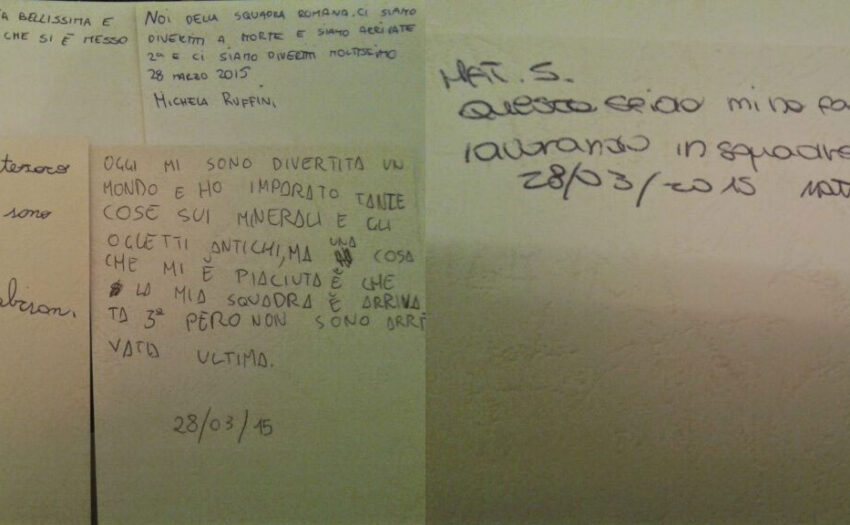 A BELLISSIMA E
CHE SI È MESSO
NOI DELLA SQUADRA ROMANA, CI SIAMO
DIVERTITI A MORTE E SIAMO ARRIVATE
2ª E CI SIAMO DIVERTITI MOLTISSIMO
28 MARZO 2015
MICHELA RUFFINI,
sono
OGGI MI SONO DIVERTITA UN
MONDO E HO IMPARATO TANTE
COSE SUI MINERALI E GLI
OGGETTI ANTICHI, MA UNA COSA
CHE MI È PIACIUTA È CHE
LA MIA SQUADRA È ARRIVA
TA 3ª PERÒ NON SONO ARRI
VATA ULTIMA.
28/03/15
MAT. S.
mi
lavorando in squadra
28/03/2015 MAT